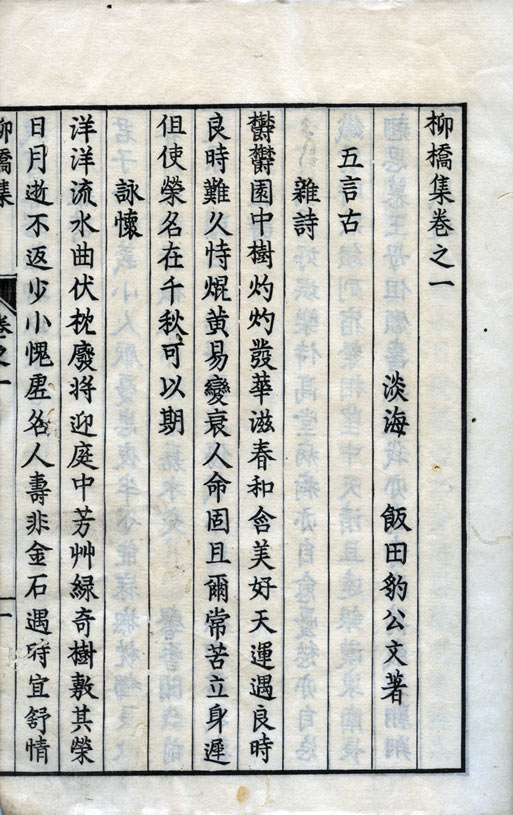 柳橋集卷之一
淡海 飯田豹公文著
五言古
雜詩
欝欝園中樹灼灼發華滋春和含美好天運遇良時
良時難久恃焜黄易變衰人命固且爾常苦立身遲
但使榮名在千秋可以期
詠懷
洋洋流水曲伏枕廢將迎庭中芳艸緑奇樹敷其榮
日月逝不返少小愧虛名人壽非金石遇時宜舒情
柳橋集 卷之一 一